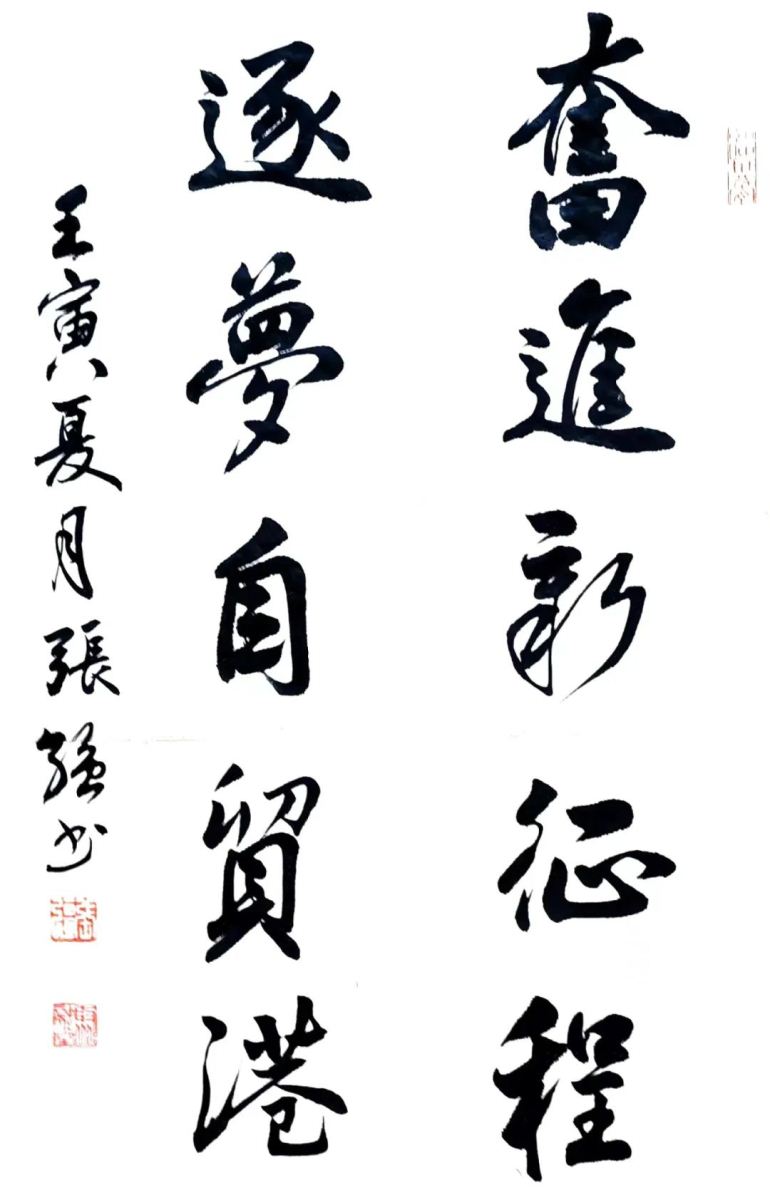 奮進新征程
逐夢自貿港
壬寅夏月張強书